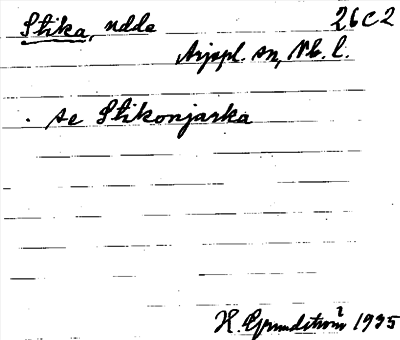 Stika, udde 26C2
Arjepl. sn, Nb. l.
. se Stikonjarka
H. Grundström 1935